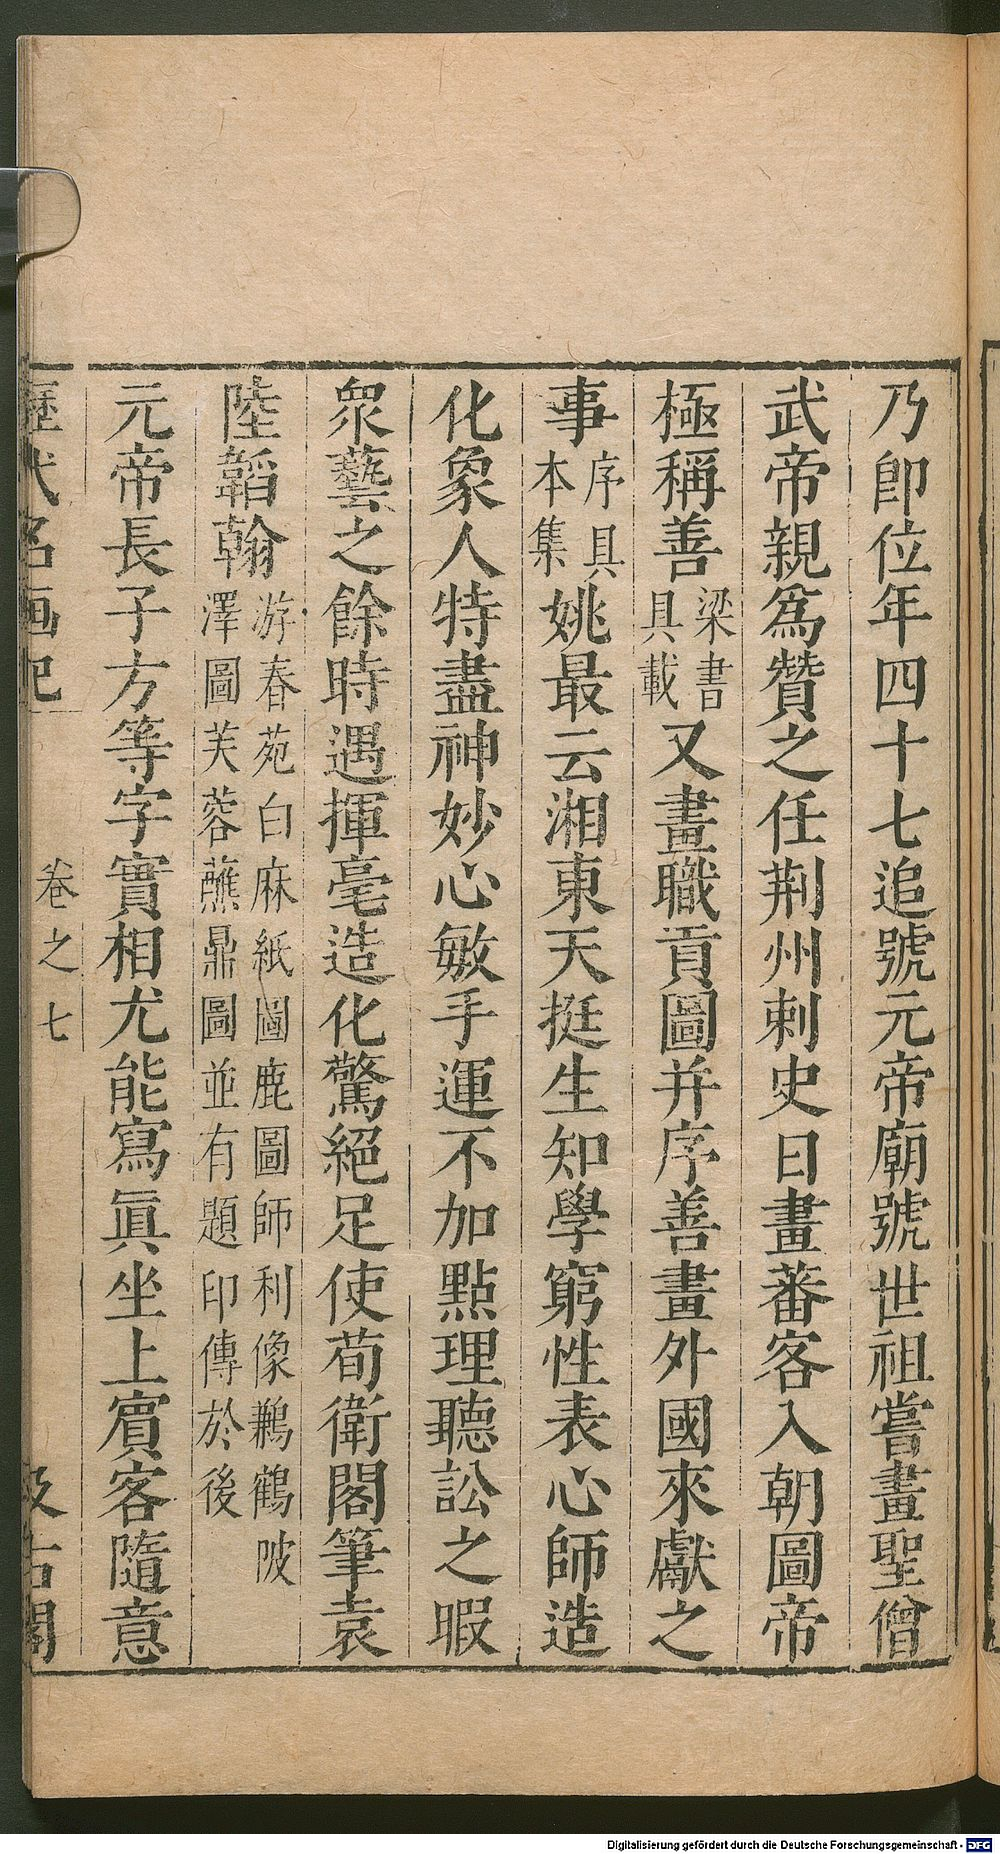 乃卽位年四十七追號元帝廟號世祖嘗畫聖僧
武帝親爲贊之任荆州刺史日畫蕃客入朝圖帝
極稱善梁書具載又畫職貢圖并序善畫外國來獻之
事序具本集姚最云湘東天挺生知學窮性表心師造
化象人特盡神妙心敏手運不加點理聽訟之暇
衆藝之餘時遇揮毫造化驚絕足使荀衛閣筆袁
陸韜翰游春苑白麻紙圖鹿圖師利像鶼鶴陂澤圖芙蓉蘸鼎圖並有題印傳於後
元帝長子方等字實相尤能寫眞坐上賓客隨意
歷代名画記 卷之七 汲古閣
Digitalisierung gefördert durch die Deutsche Forschungsgemeinschaft - DFG